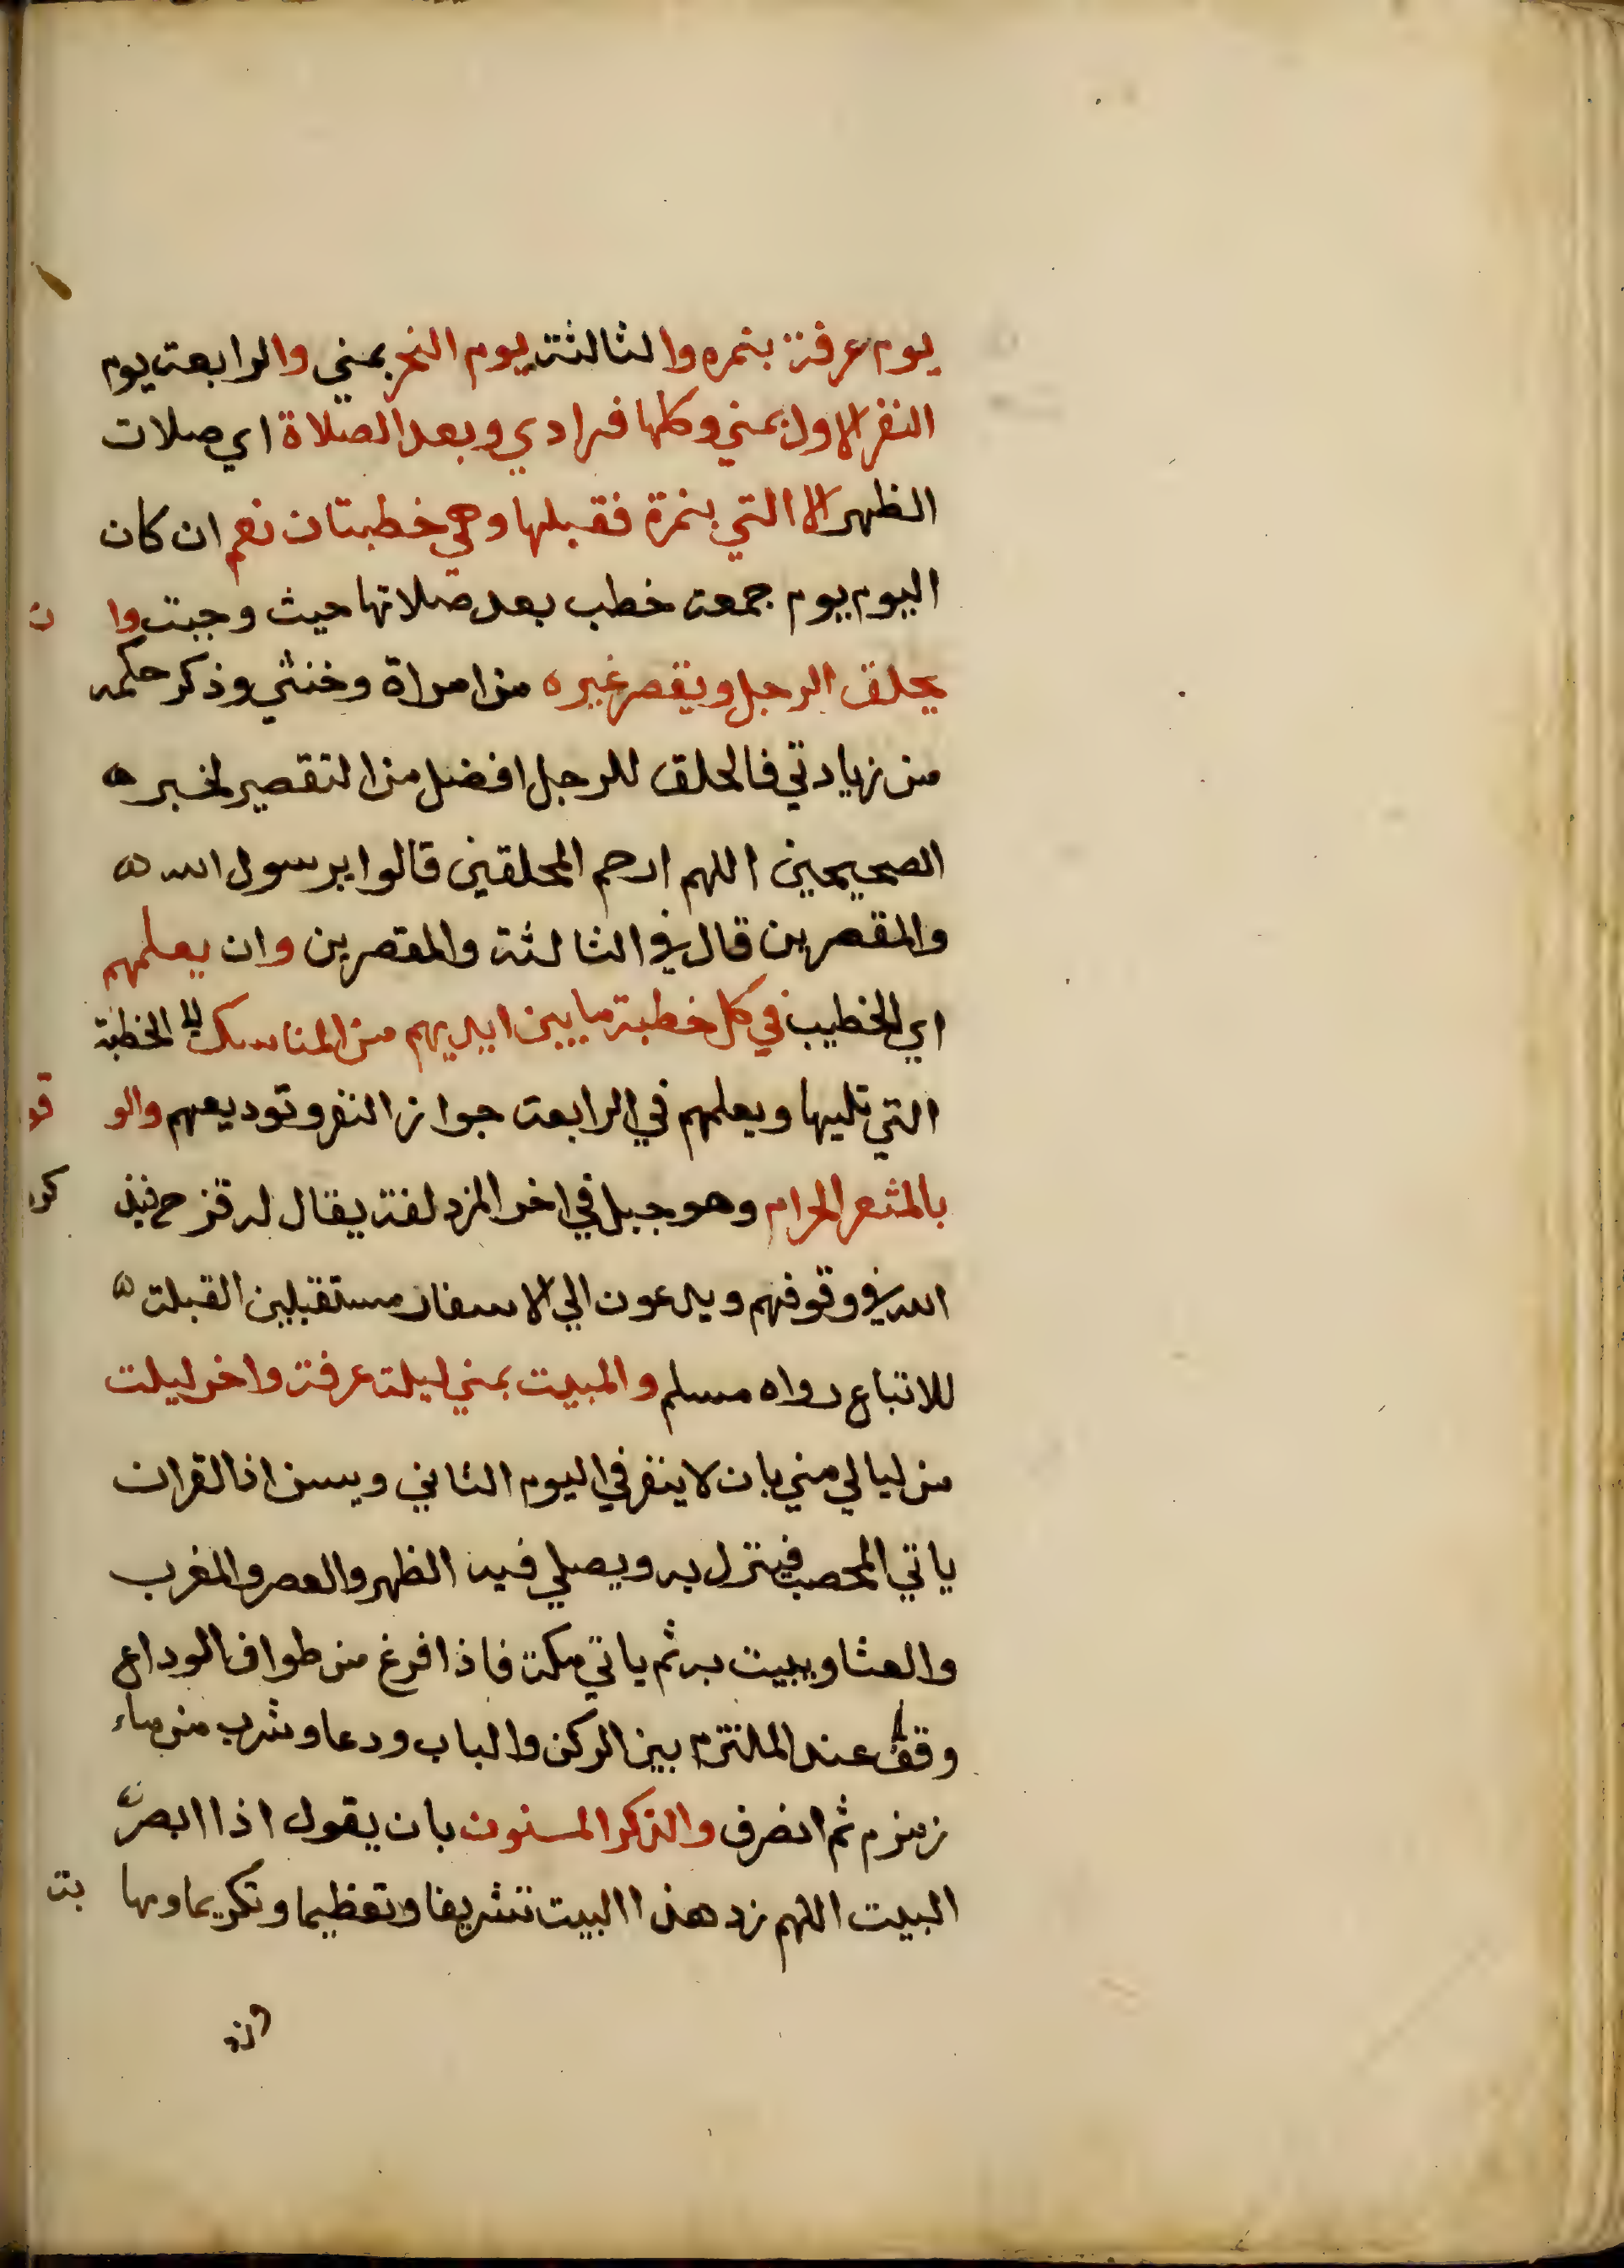 يوم عرفة بنمره والثالثة يوم النحر بمني والرابعة يوم
النفر الاول بمني وكلها فرادي وبعد الصلاة اي صلات
الظهر الا التي بنمرة فقبلها وهي خطبتان نعم ان كان
اليوم يوم جمعة خطب بعد صلاتها حيث وجبت وا ن
يحلق الرجل ويقصر غيره من امراة وخنثي وذكر حكمه
من زيادتي فالحلق للرجل افضل من التقصير لخبر ه
الصحيحين اللهم ارحم المحلقين قالوا يرسول الله ه
والمقصرين قال في الثالثة والمقصرين وان يعلمهم
اي الخطيب في كل خطبة ما بين ايديهم من المناسك الي الخطبة
التي تليها ويعلمهم في الرابعة جواز النفر وتوديعهم والو قو
بالمشعر الحرام وهو جبل في اخر المزدلفة يقال له قزح فيذ كر
الله في وقوفهم ويدعون الي الاسفار مستقبلين القبلة ه
للاتباع رواه مسلم والمبيت بمني ليلة عرفة واخر ليلت
من ليالي مني بان لا ينفر في اليوم الثاني ويسن اذا القران
ياتي المحصب فينزل به ويصلي فيه الظهر والعصر والمغرب
والعشا ويبيت به ثم ياتي مكة فاذا فرغ من طواف الوداع
وقف عند الملتزم بين الركن والباب ودعا وشرب من ماء
زمزم ثم انصرف والذكر المسنون بان يقول اذا ابصر
البيت اللهم زد هذا البيت تشريفا وتعظيما وتكريما ومها بت